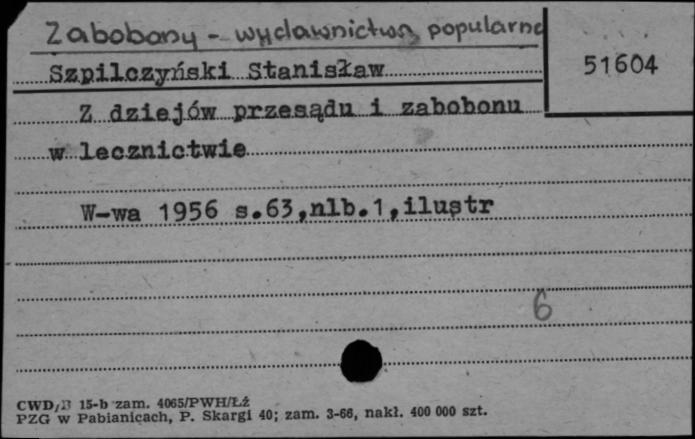 Zabobony - wydawnictwa popularne
Szpilczyński Stanisław
51604
Z dziejów przesądu i zabobonu
w lecznictwie
W-wa 1956 s.63,nlb.1,ilustr
6
CWD/B 15-b zam. 4065/PWH/Łź
PZG w Pabianicach, P. Skargi 40; zam. 3-66, nakł. 400 000 szt.